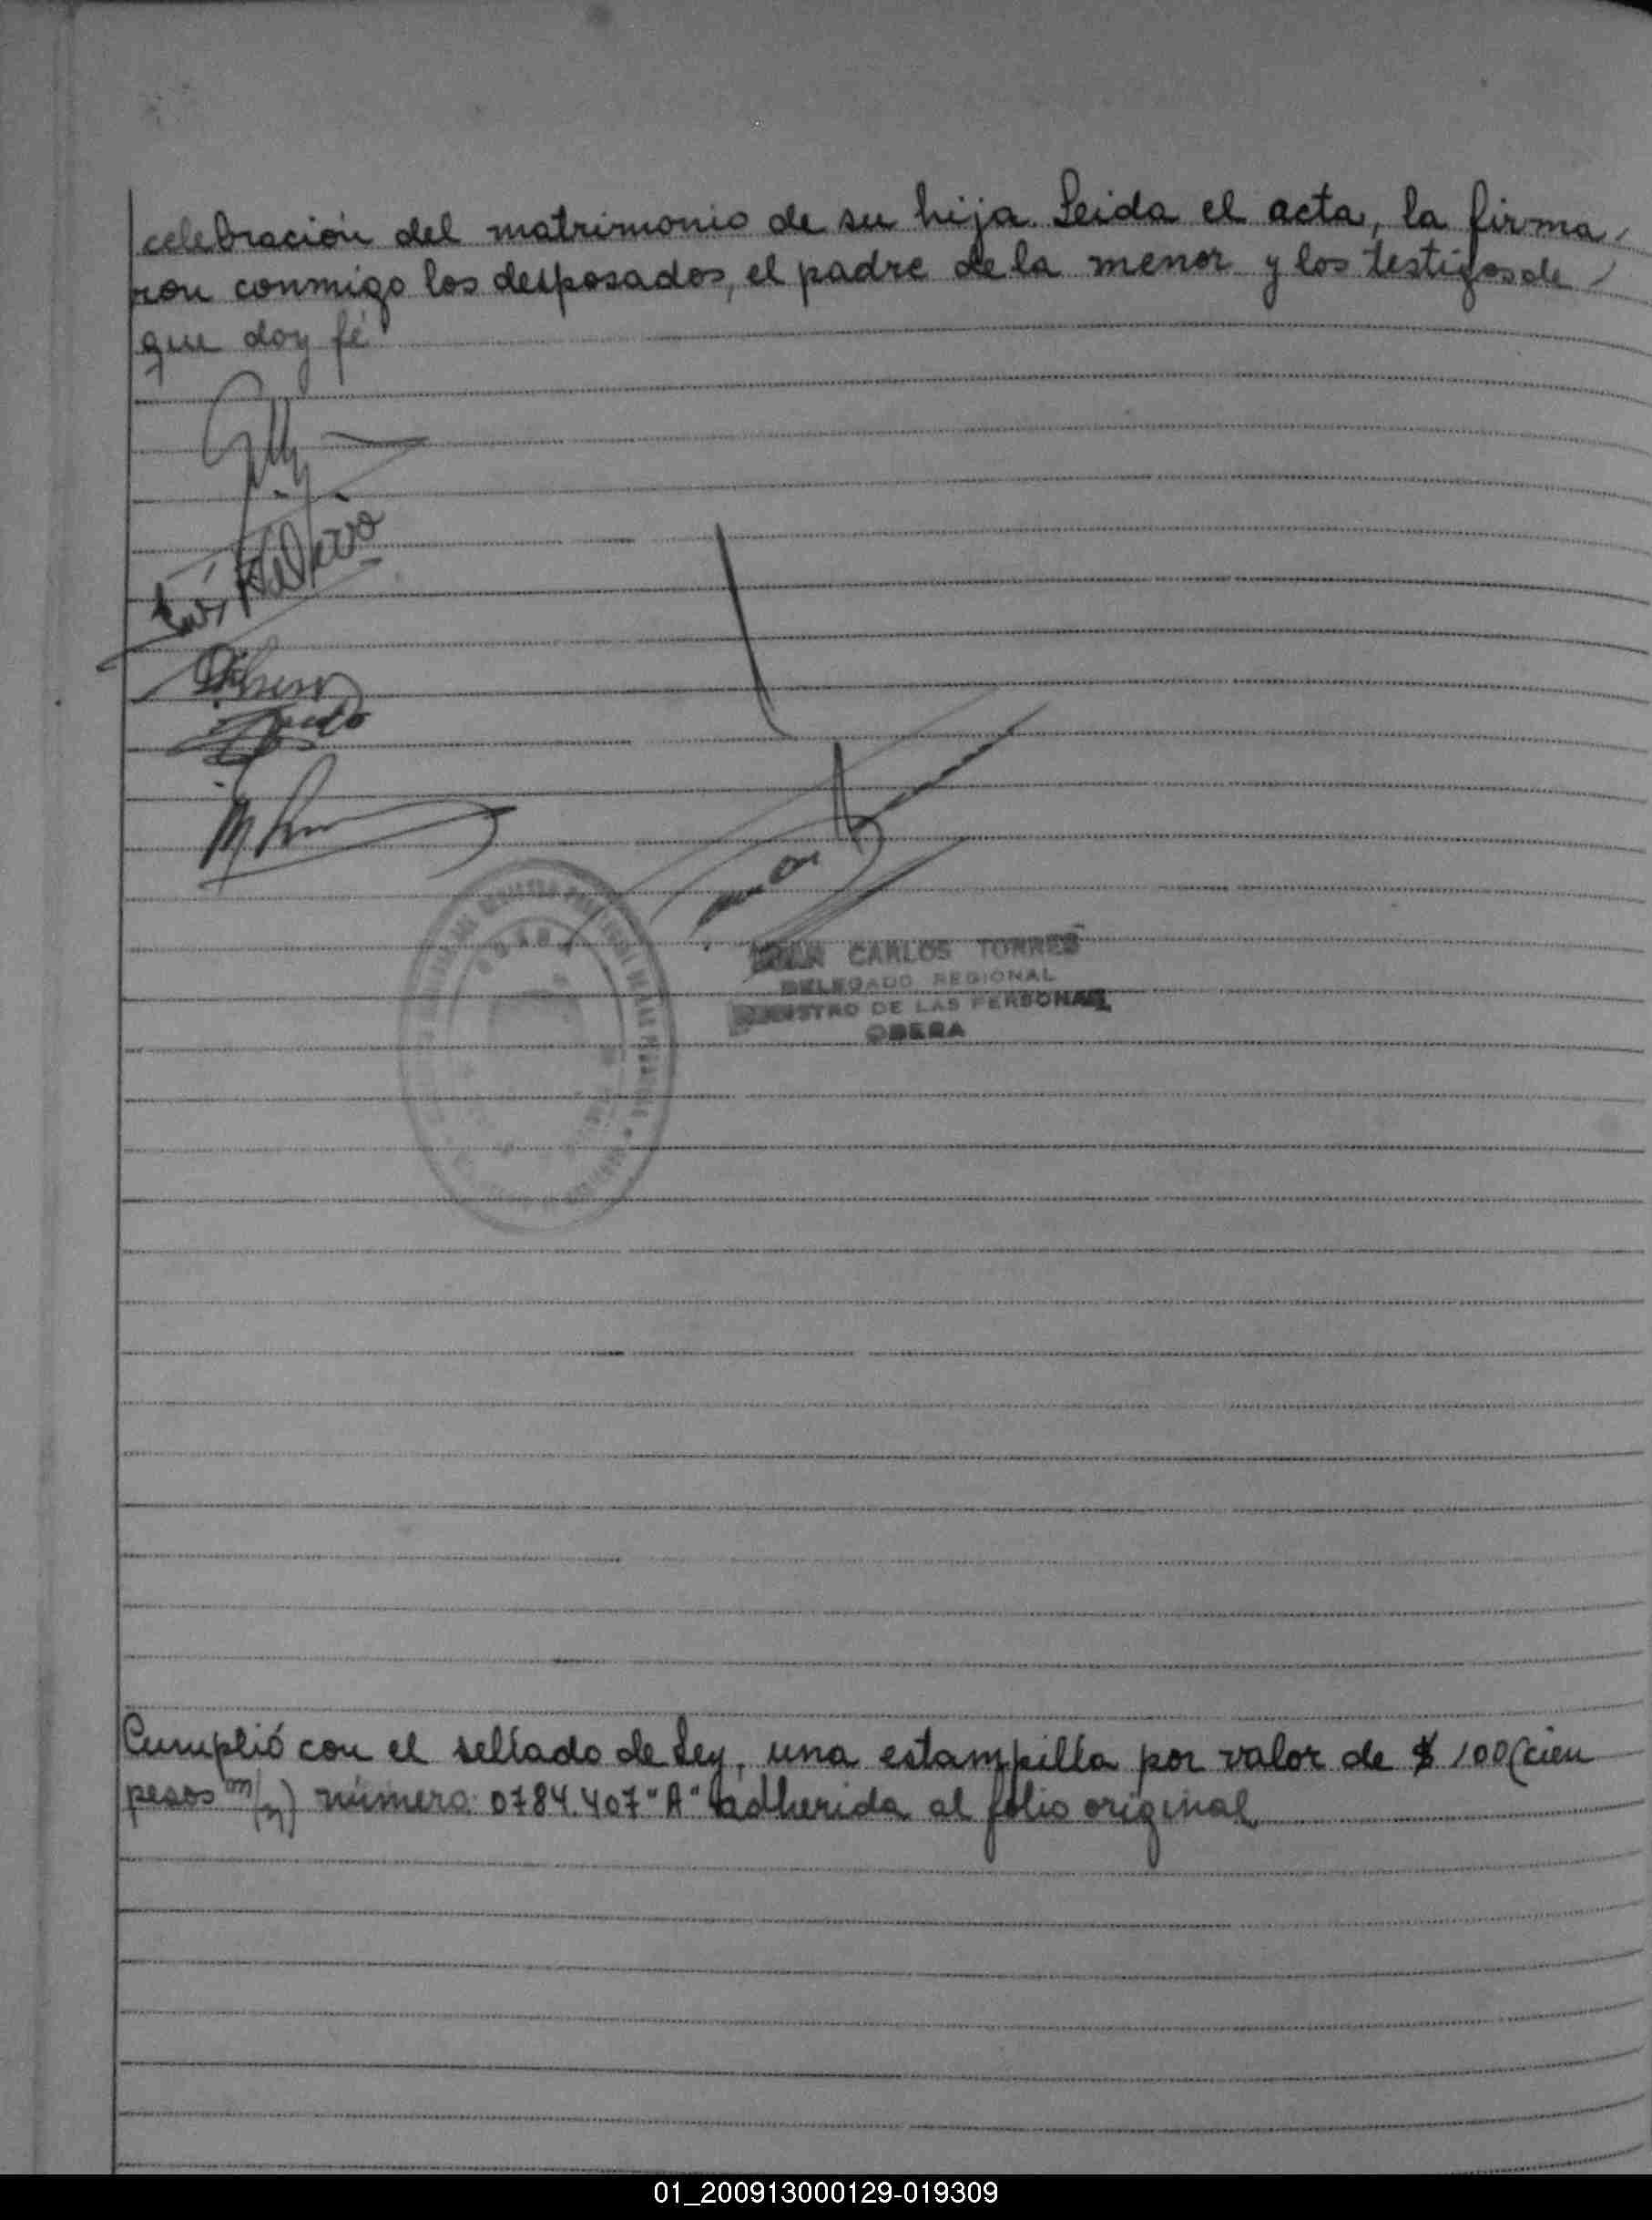 celebración del matrimonio de su hija. Leida el acta, la firma
ron conmigo los desposados, el padre de la menor y los testigos de
que doy fé
CARLOS TORRES
DELEGADO REGIONAL
REGISTRO DE LAS PERSONAS
OBERA
Cumplió con el sellado de Ley, una estampilla por valor de $ 100 (cien
pesos m/n) número: 0784.407 "A" adherida al folio original
01_200913000129-019309